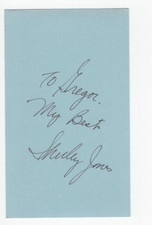 To Gregor.
My Best
Shirley Jones